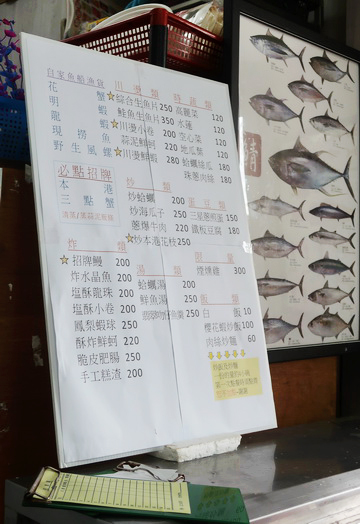 自家漁船漁貨
花 蟹
明 蝦
龍 蝦
現撈魚
野生風螺
必點招牌
本港
三點蟹
川燙類
☆綜合生魚片 250
鮭魚生魚片 350
☆川燙小卷 200
蒜泥鮮蚵 220
☆川燙鮮蝦 280
時蔬類
高麗菜 120
水蓮 120
空心菜 120
地瓜葉 120
蛤蠣絲瓜 180
珠蔥肉絲 180
炒類
炒蛤蠣 200
炒海瓜子 250
蔥爆牛肉 220
☆炒本港花枝 250
蛋豆類
三星蔥煎蛋 150
鐵板豆腐 180
炸類
☆招牌鰻 200
炸水晶魚 200
塩酥龍珠 200
塩酥小卷 200
鳳梨蝦球 250
酥炸鮮蚵 220
脆皮肥腸 250
手工糕渣 200
湯類
蛤蠣湯 200
鮮魚湯 250
限量
煙燻雞 300
飯類
白飯 10
櫻花蝦炒飯 100
肉絲炒麵 60